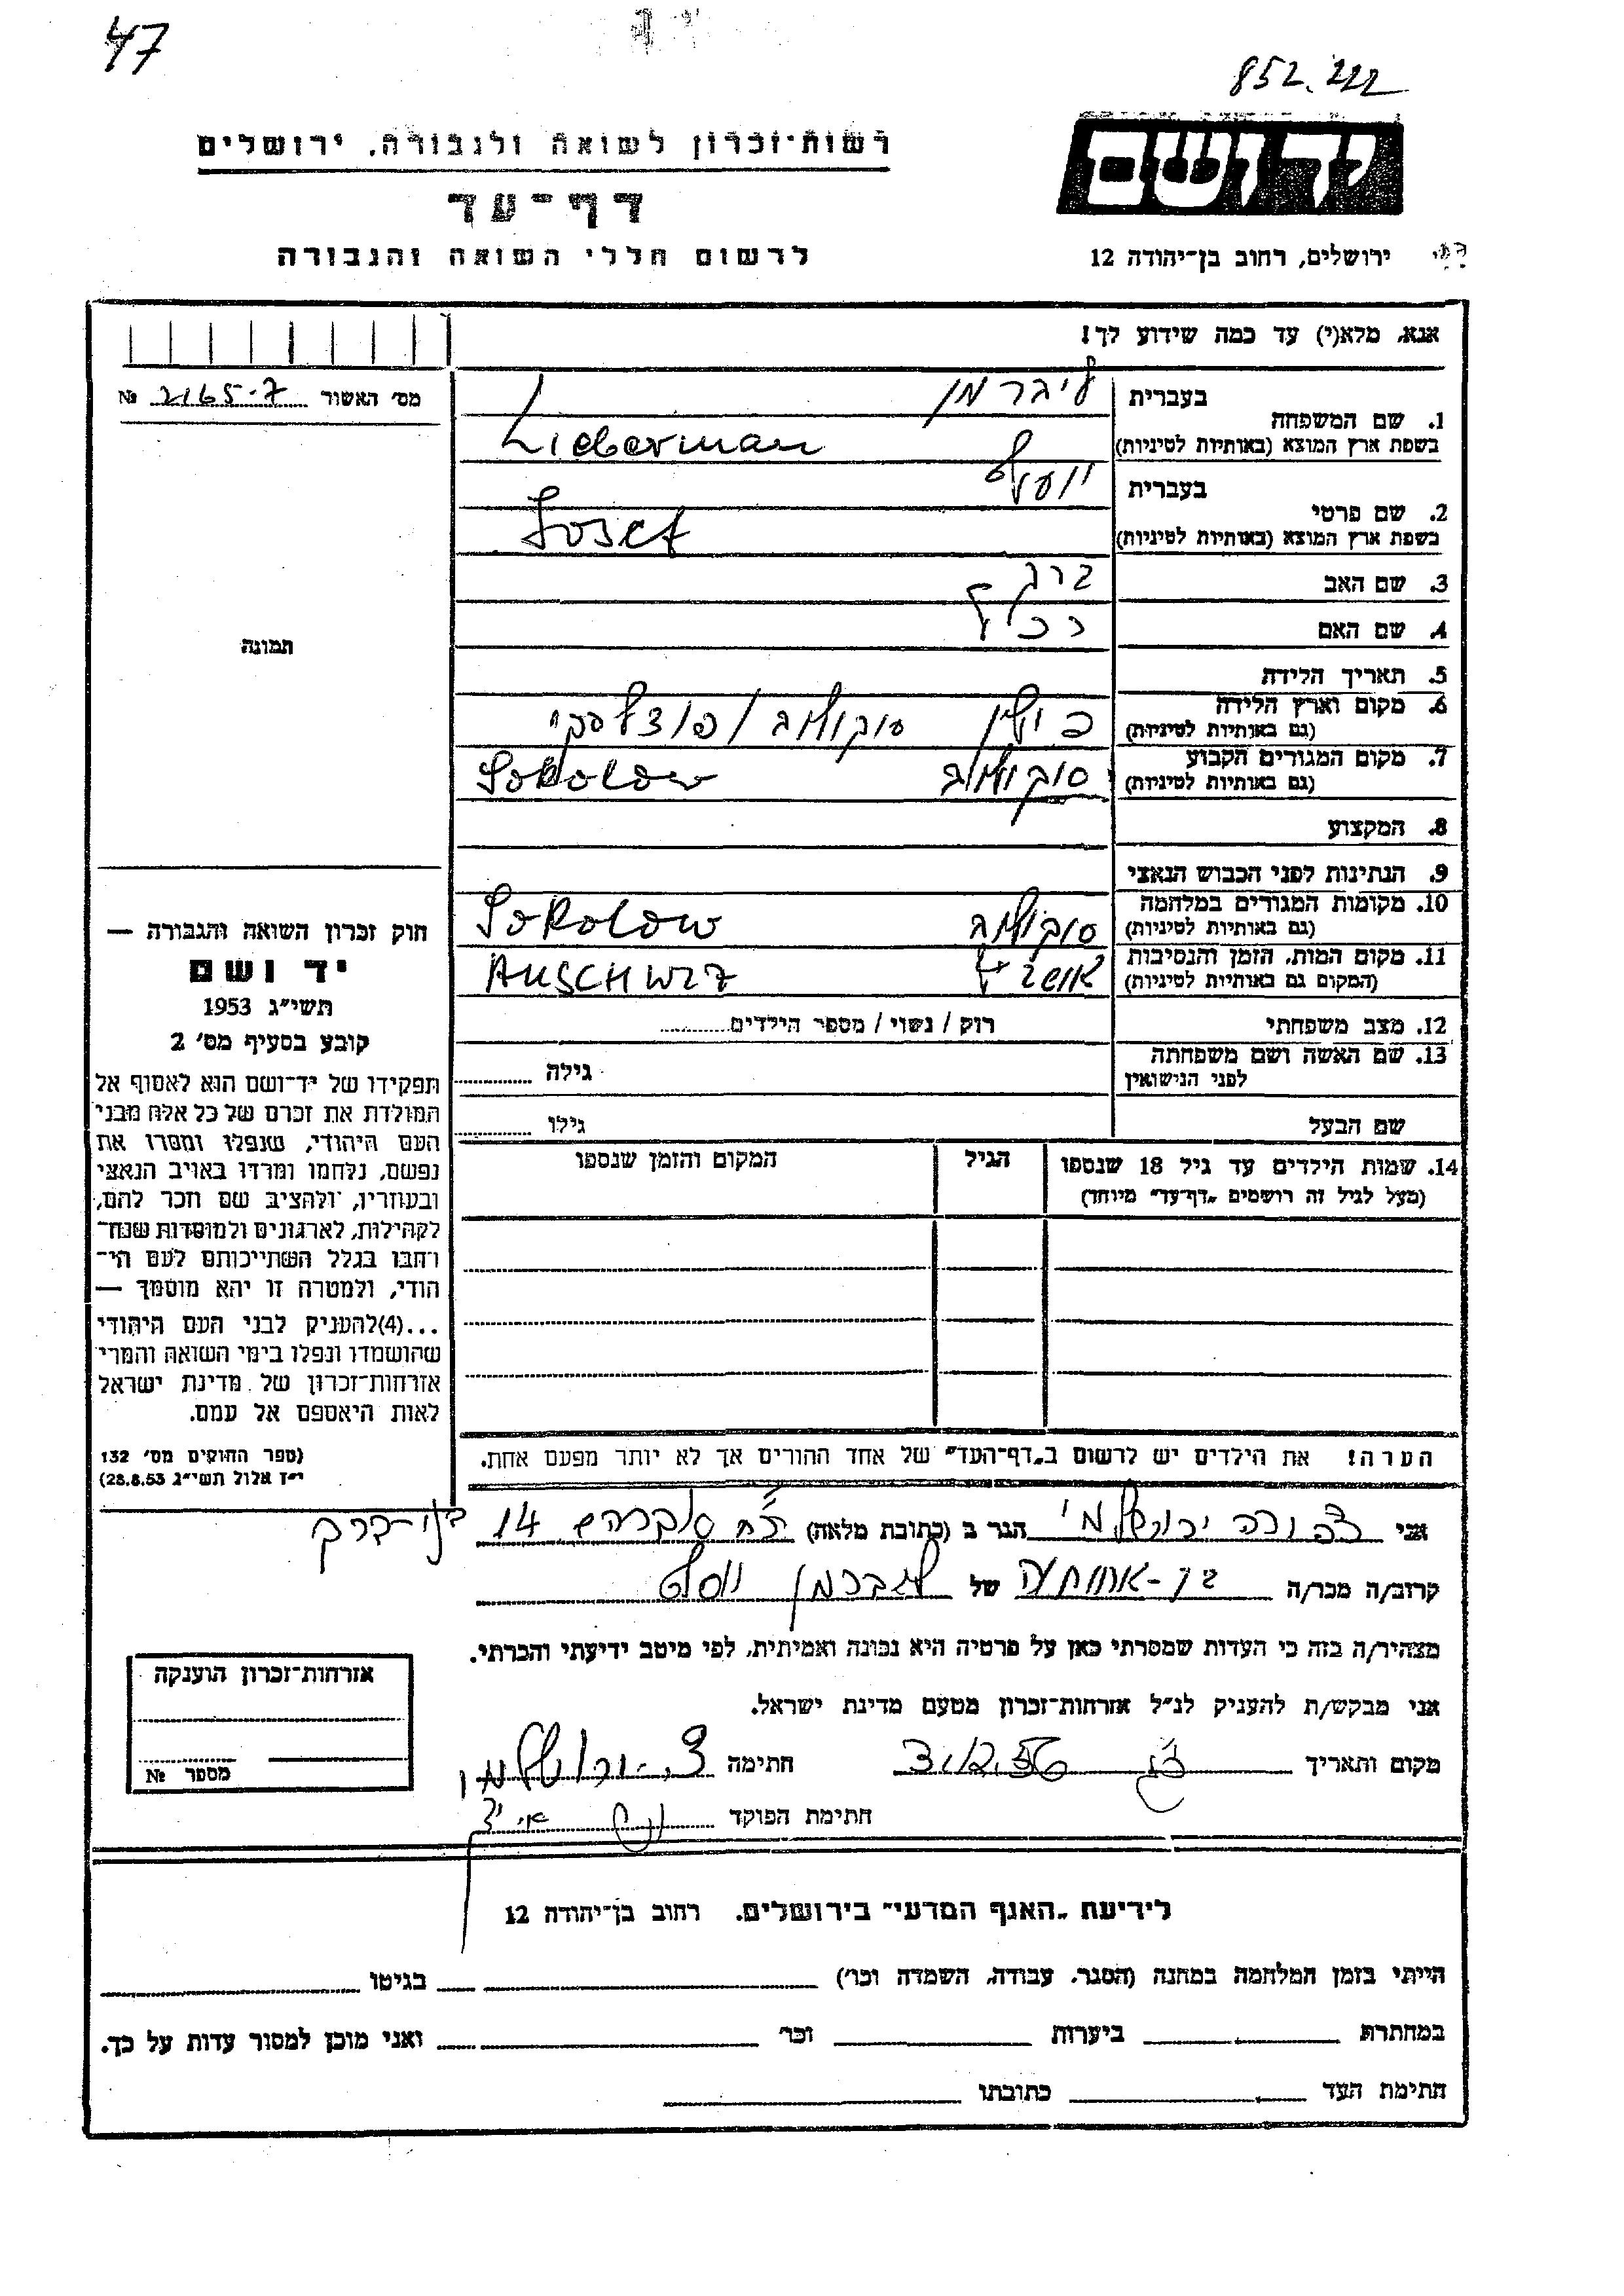 47
852.222
רשות־זכרון לשואה ולגבורה, ירושלים
יד ושם
דף־עד
לרשום חללי השואה והגבורה
ירושלים, רחוב בן־יהודה 12
אנא, מלא(י) עד כמה שידוע לך!
מס׳ האשור 2165-7 №
1. שם המשפחה
בעברית ליברמן
בשפת ארץ המוצא (באותיות לטיניות) Lieberman
2. שם פרטי
בעברית
בשפת ארץ המוצא (באותיות לטיניות) Josef
3. שם האב ברג
4. שם האם
5. תאריך הלידה
6. מקום וארץ הלידה פולין סוקולוב / פודלסקי
(גם באותיות לטיניות)
7. מקום המגורים הקבוע סוקולוב Sokolow
(גם באותיות לטיניות)
8. המקצוע
9. הנתינות לפני הכבוש הנאצי
10. מקומות המגורים במלחמה סוקולוב Sokolow
(גם באותיות לטיניות)
11. מקום המות, הזמן והנסיבות אושביץ AUSCHWIZ
(המקום גם באותיות לטיניות)
12. מצב משפחתי רוק / נשוי / מספר הילדים
13. שם האשה ושם משפחתה גילה
לפני הנישואין
שם הבעל גילו
14. שמות הילדים עד גיל 18 שנספו הגיל המקום והזמן שנספו
(מעל לגיל זה רושמים „דף־עד״ מיוחד)
הערה! את הילדים יש לרשום ב„דף־העד״ של אחד ההורים אך לא יותר מפעם אחת.
תמונה
חוק זכרון השואה והגבורה —
יד ושם
תשי״ג 1953
קובע בסעיף מס׳ 2
תפקידו של יד־ושם הוא לאסוף אל
המולדת את זכרם של כל אלה מבני
העם היהודי, שנפלו ומסרו את
נפשם, נלחמו ומרדו באויב הנאצי
ובעוזריו, ולהציב שם וזכר להם,
לקהילות, לארגונים ולמוסדות שנח־
רחבו בגלל השתייכותם לעם הי־
הודי, ולמטרה זו יהא מוסמך —
...(4)להעניק לבני העם היהודי
שהושמדו ונפלו בימי השואה והמרי
אזרחות־זכרון של מדינת ישראל
לאות היאספם אל עמם.
(ספר החוקים מס׳ 132
י״ז אלול תשי״ג 28.8.53)
אני צפורה ירושלמי הגר ב (כתובת מלאה) 14
קרוב/ה מכר/ה בן-אחותה של ליברמן יוסף
מצהיר/ה בזה כי העדות שמסרתי כאן על פרטיה היא נכונה ואמיתית, לפי מיטב ידיעתי והכרתי.
אני מבקש/ת להעניק לנ״ל אזרחות־זכרון מטעם מדינת ישראל.
מקום ותאריך חתימה צ. ירושלמי
חתימת הפוקד
אזרחות־זכרון הוענקה
מספר №
לידיעת „האגף המדעי״ בירושלים. רחוב בן־יהודה 12
הייתי בזמן המלחמה במחנה (הסגר, עבודה, השמדה וכו׳) בגיטו
במחתרת ביערות וכו׳ ואני מוכן למסור עדות על כך.
חתימת העד כתובתו